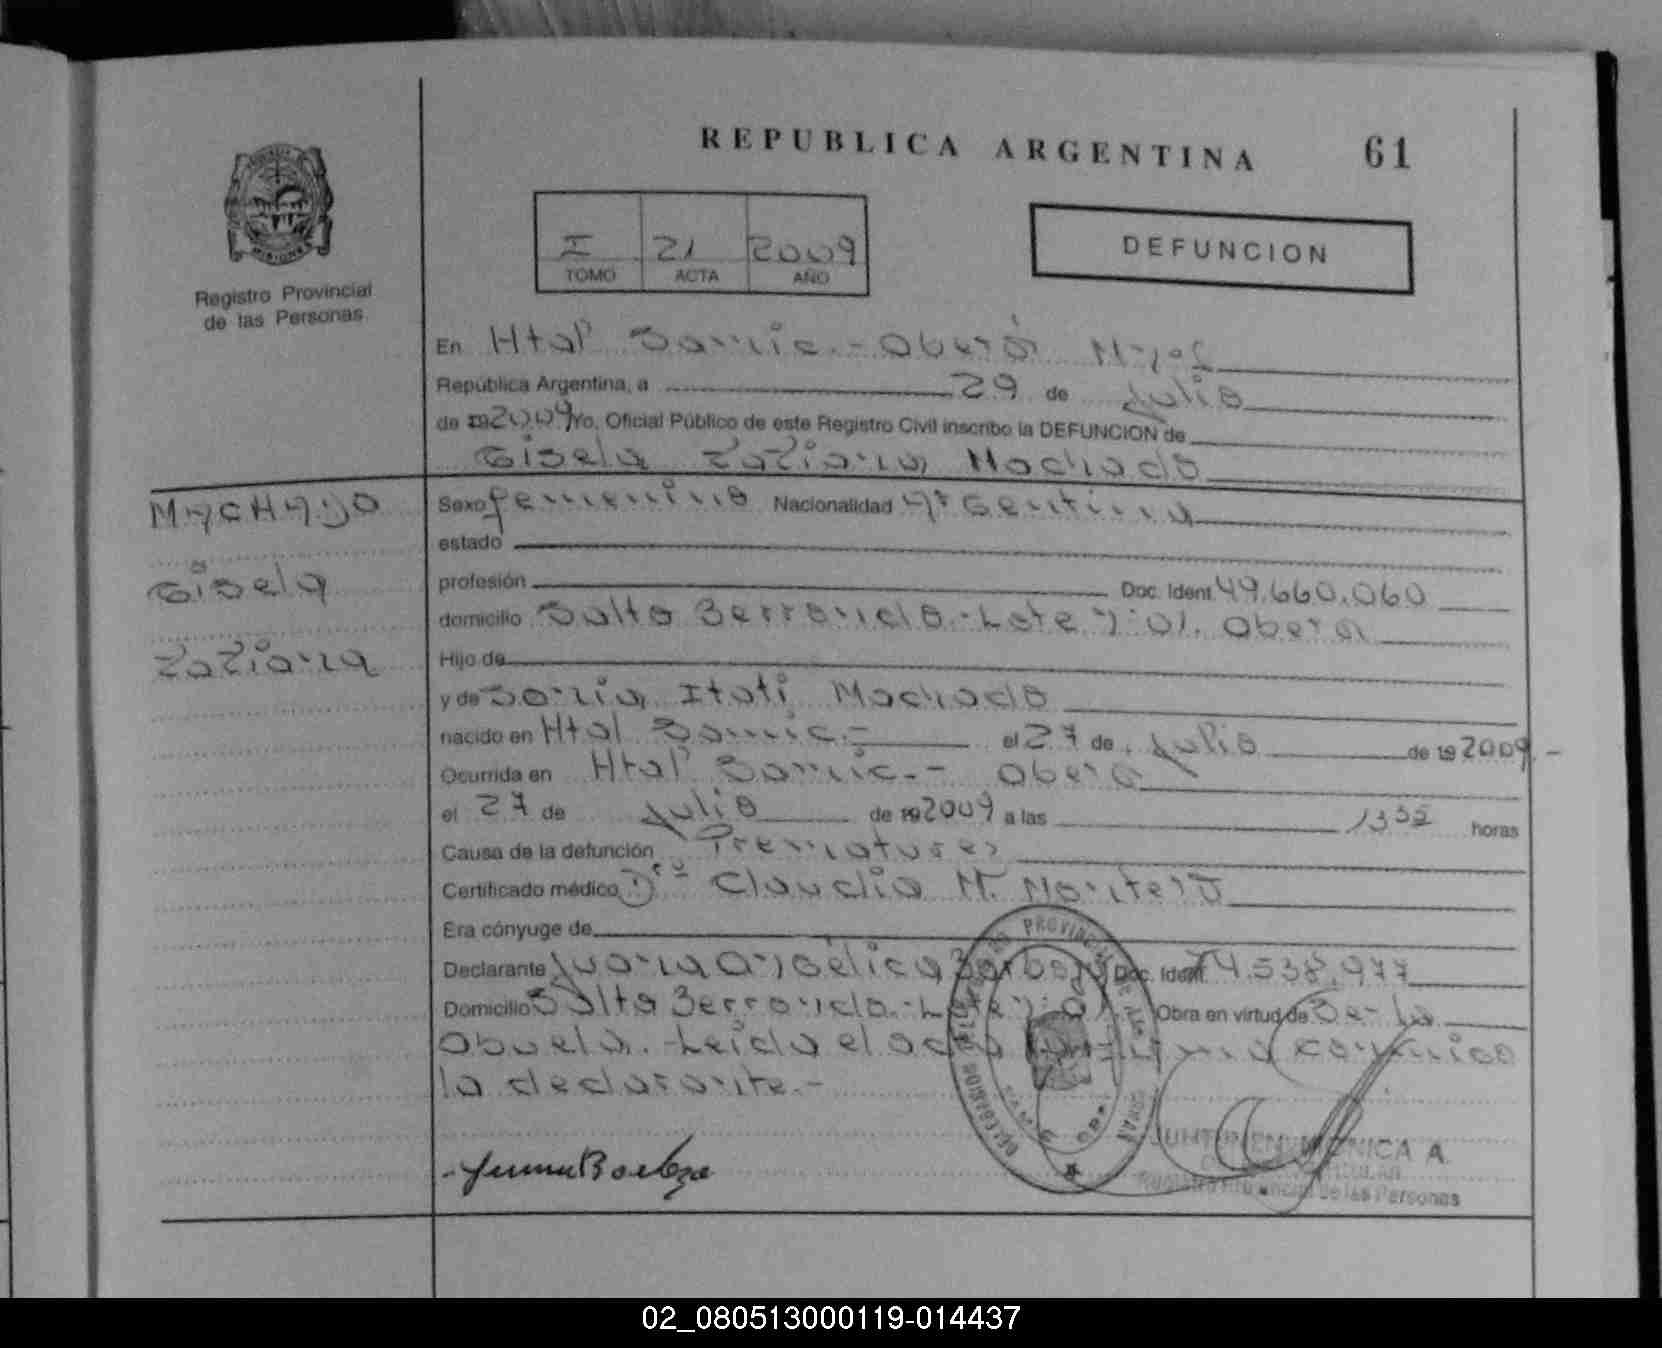 REPUBLICA ARGENTINA 61
I 21 2009
TOMO ACTA AÑO
DEFUNCION
Registro Provincial
de las Personas
En Htal Samic.- Oberá Mnes
República Argentina, a 29 de Julio
de 19 2009 Yo, Oficial Público de este Registro Civil inscribo la DEFUNCION de
Gisela Tatiana Machado
MACHADO
Gisela
Tatiana
Sexo femenino Nacionalidad Argentina
estado
profesión Doc. Ident. 49.660.060
domicilio Salto Berrondo.- Lote Oberá
Hijo de
y de Sonia Itatí Machado
nacido en Htal Samic.- el 27 de Julio de 19 2009.-
Ocurrida en Htal Samic.- Oberá
el 27 de Julio de 19 2009 a las 13 horas
Causa de la defunción
Certificado médico Dra Claudia M. Montero
Era cónyuge de
Declarante Juana Angélica Doc. Ident. 4.538.977
Domicilio Salto Berrondo.- Lote Obra en virtud de Ser la
abuela.- Leída el acta conmigo
la declarante.-
MONICA A.
Registro Provincial de las Personas
02_080513000119-014437